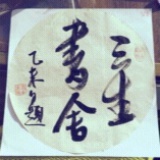 三生
書舍
乙未題